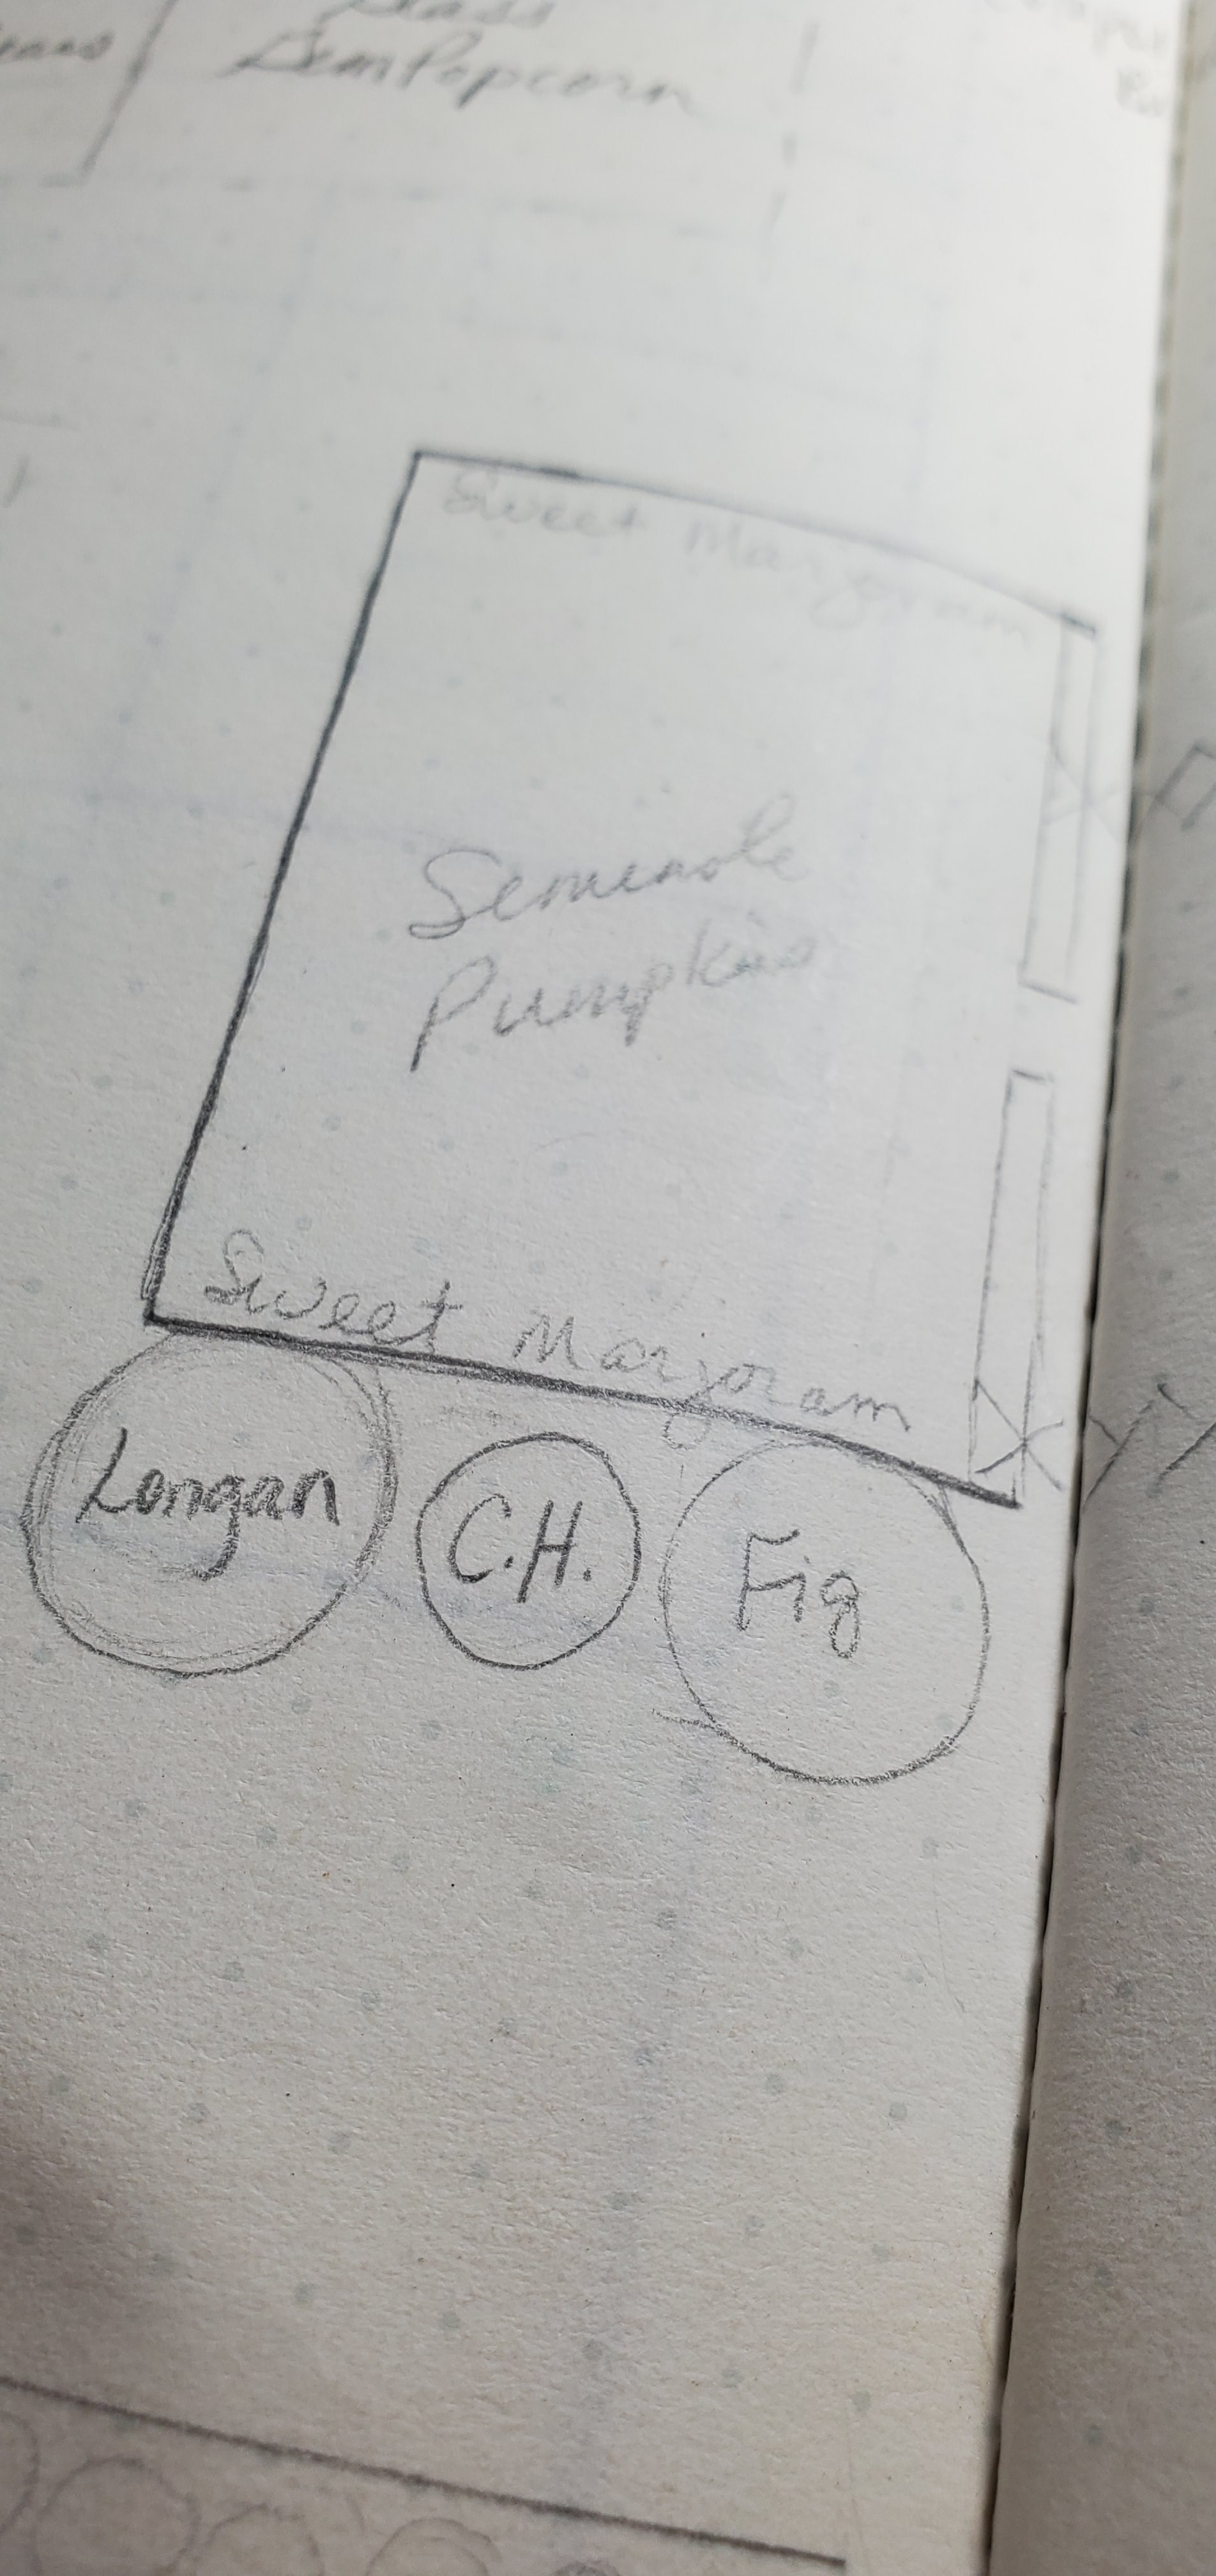 Glass
Gem Popcorn
Sweet Marjoram
Seminole
Pumpkins
Sweet Marjoram
Longan
C.H.
Fig